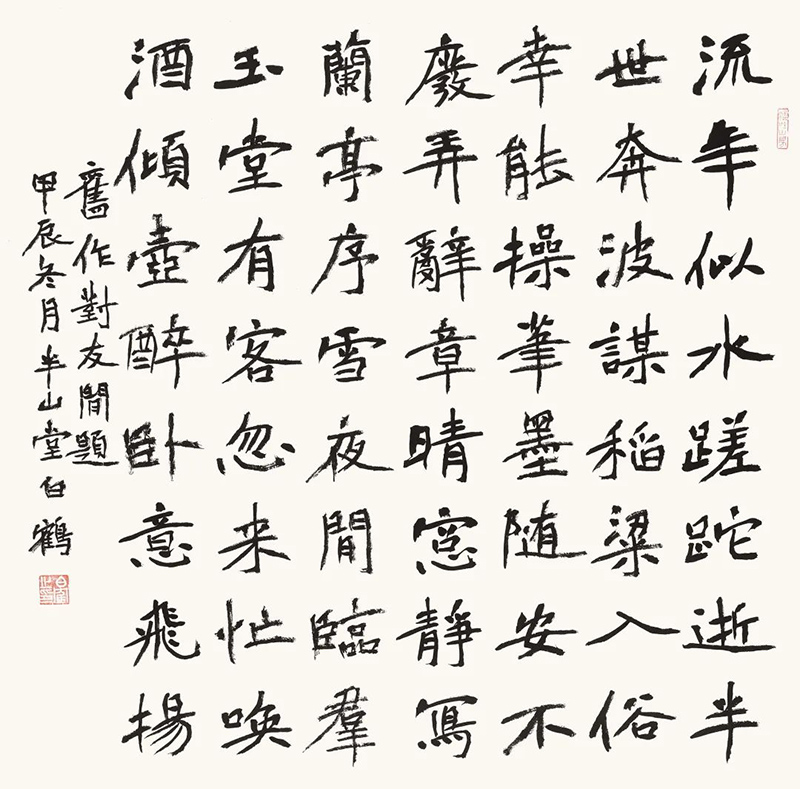 流年似水蹉跎逝半
世奔波謀稻粱入俗
幸能操筆墨随安不
廢弄辭章晴窓靜寫
蘭亭序雪夜閒臨羣
玉堂有客忽来忙唤
酒傾壺醉卧意飛揚
舊作對友閒題
甲辰冬月半山堂白鶴